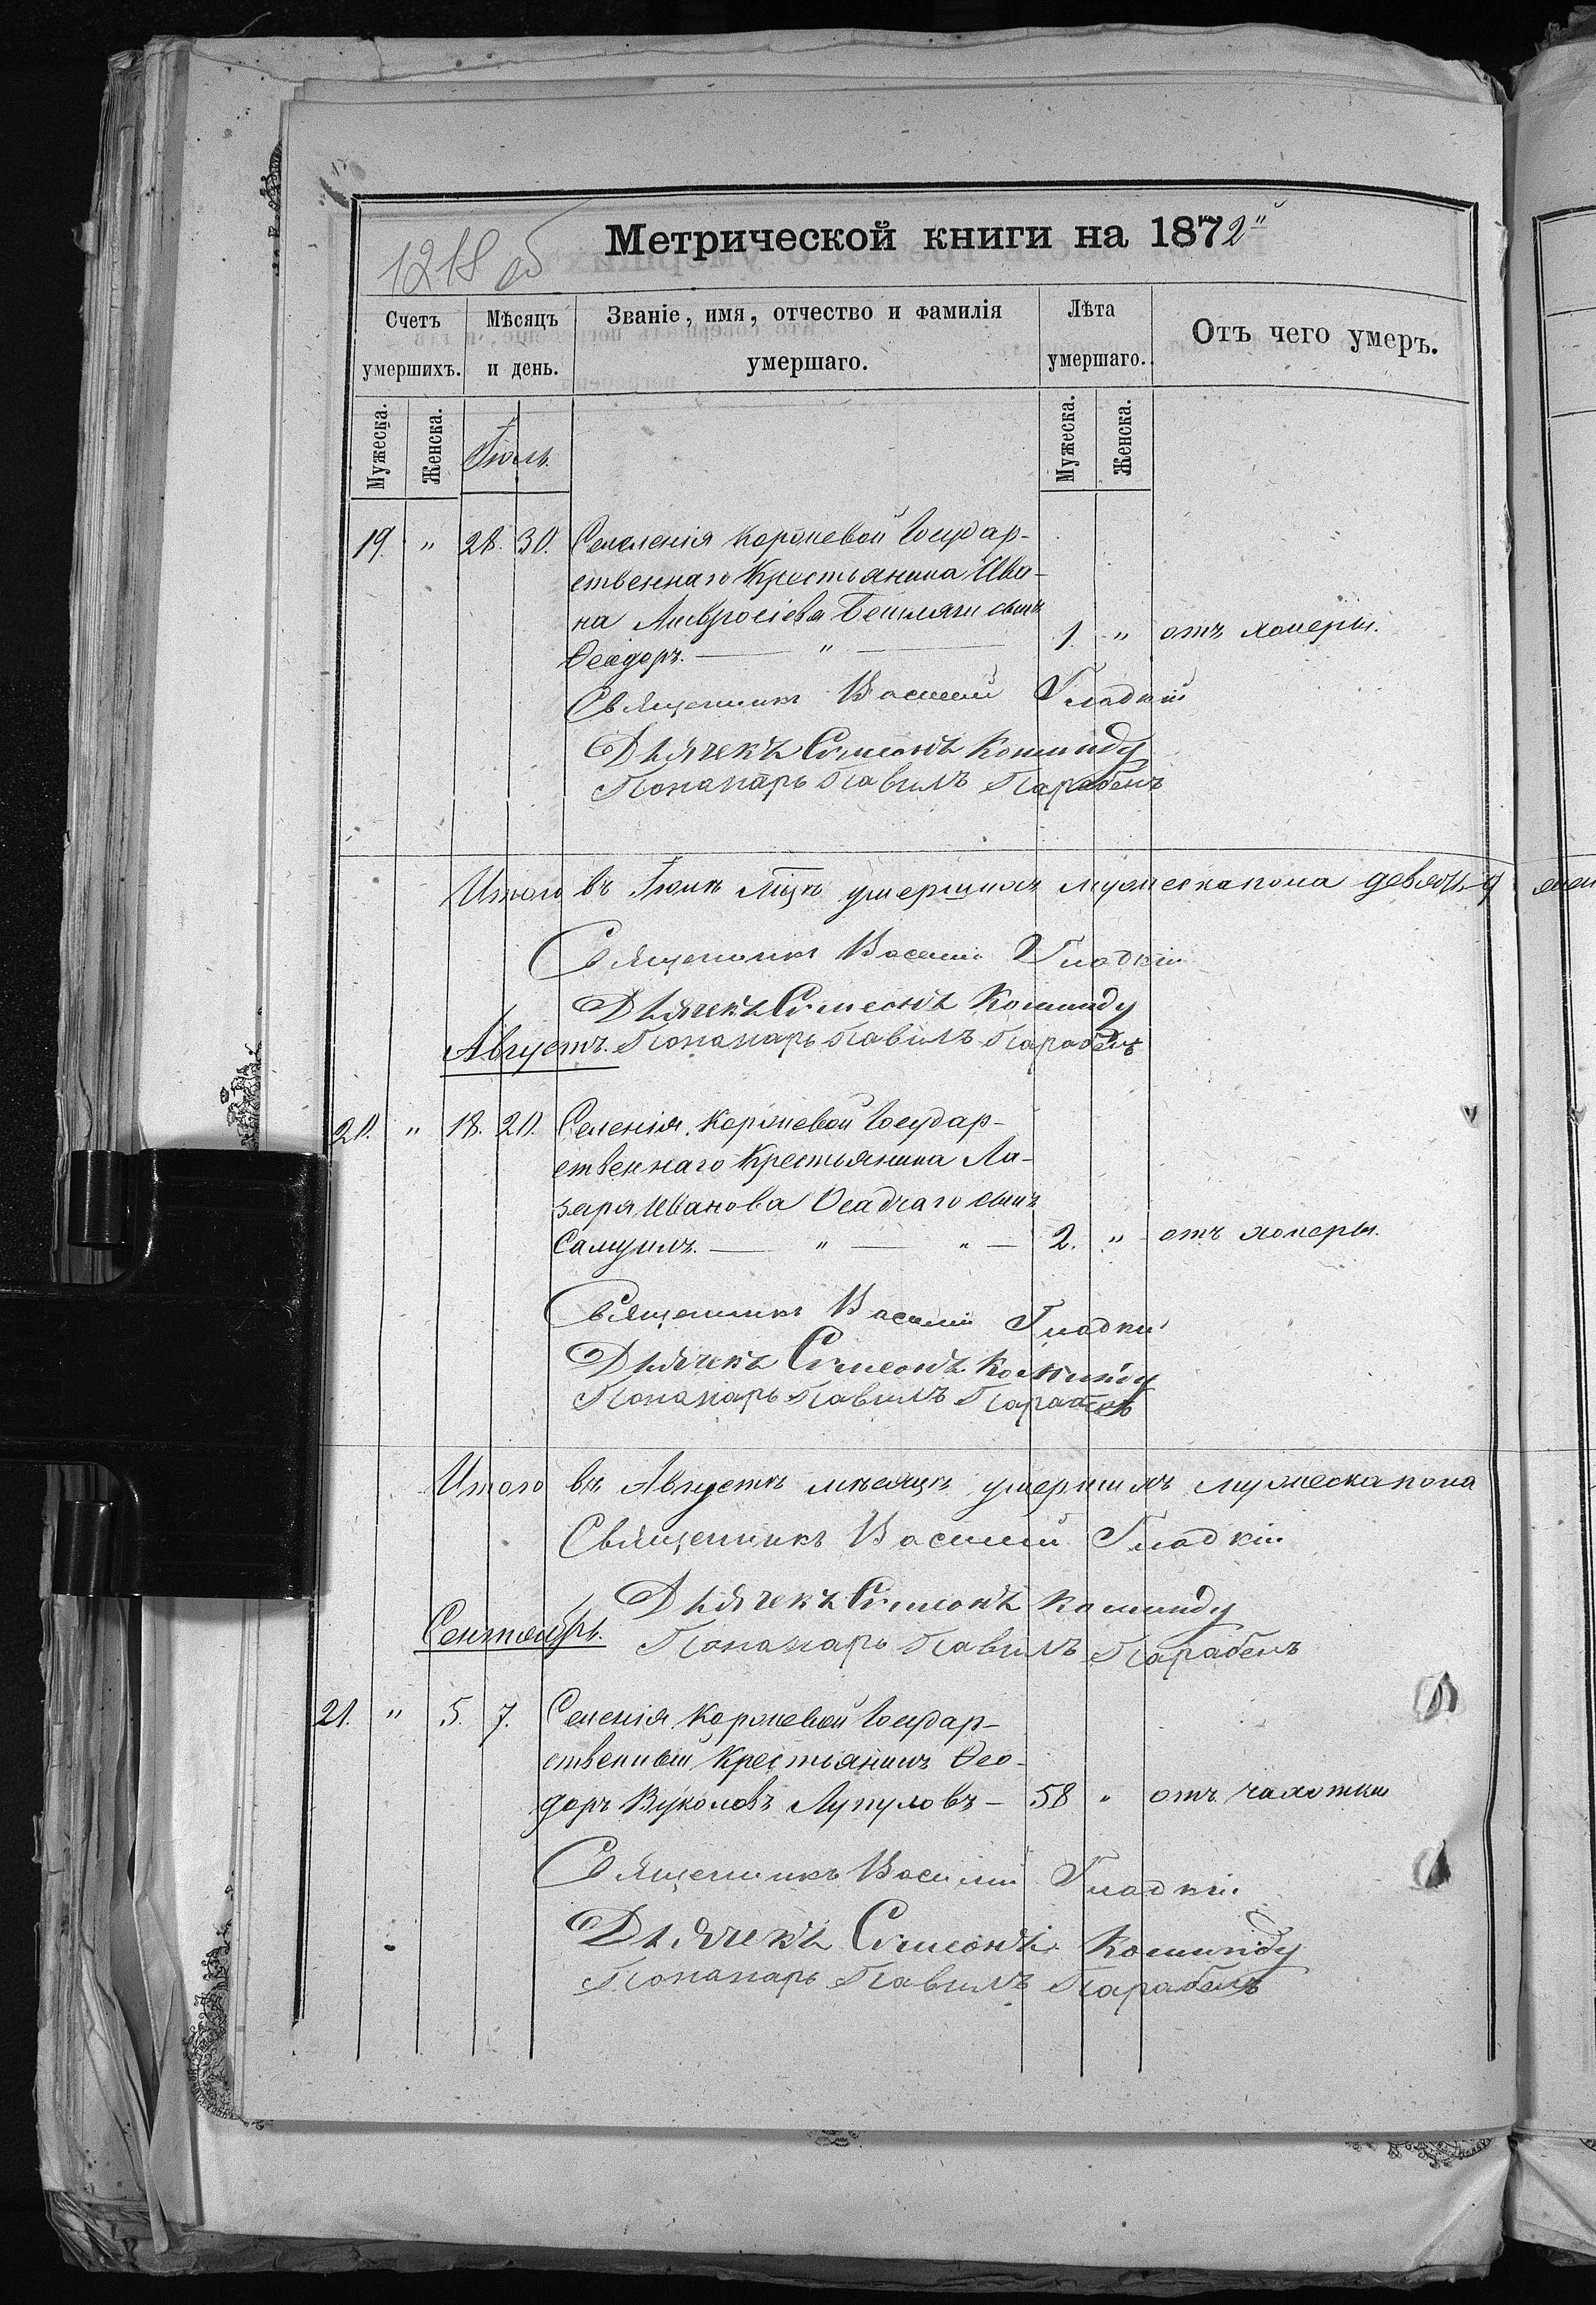 Метрической книги на 1872й
1218 об
Счетъ умершихъ.
Мѣсяцъ и день.
Званіе, имя, отчество и фамилія умершаго.
Лѣта умершаго.
Отъ чего умеръ.
Мужеска. Женска. Іюль. Мужеска. Женска.
19. " 28. 30. Селенія Королевой Государ-
ственнаго Крестьянина Ива-
на Амвросіева сынъ
Ѳеодоръ. — " — 1. " отъ холеры.
Священникъ Василій Гладкій
Дьячекъ Симеонъ
Пономарь Павилъ
Итого въ Іюлѣ мцѣ умершихъ мужеска пола девять 9
Священникъ Василій Гладкій
Дьячекъ Симеонъ
Августъ. Пономарь Павилъ
20. " 18. 20. Селенія Королевой Государ-
ственнаго Крестьянина Ла-
заря Иванова Осадчаго сынъ
Самуилъ. — " — " — 2. " отъ холеры.
Священникъ Василій Гладкій
Дьячекъ Симеонъ
Пономарь Павилъ
Итого въ Августѣ мѣсяцѣ умершихъ мужеска пола
Священникъ Василій Гладкій
Дьячекъ Симеонъ
Сентябрь. Пономарь Павилъ
21. " 5. 7. Селенія Королевой Государ-
ственный Крестьянинъ Ѳео-
доръ Вуколовъ Лупуловъ — 58 " отъ чахотки
Священникъ Василій Гладкій
Дьячекъ Симеонъ
Пономарь Павилъ